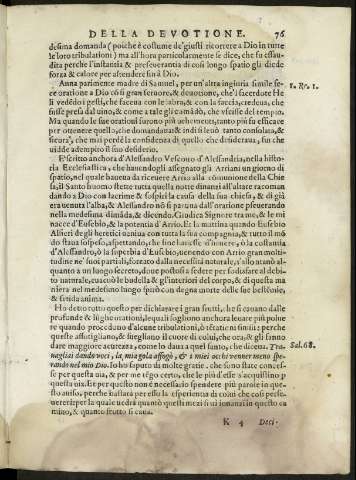 DELLA DEVOTIONE. 76
desima domanda (poiche è costume de'giusti ricorrere a Dio in tutte
le loro tribulationi) ma all'hora particolarmente se dice, che fu essau-
dita perche l'instantia & perseuerantia di cosi longo spatio gli diede
forza & calore per ascendere fin à Dio.
Anna parimente madre di Samuel, per un'altra ingiuria simile fe-
ce oratione a Dio cō si gran feruore, & deuotione, che'l sacerdote He
li vedēdo i gesti, che faceua con le labra, & con la faccia, credeua, che
fusse presa dal uino, & come a tale gli comādò, che vscisse del tempio.
Ma quando le sue orationi furono più uehementi, tanto più fu efficace
per ottenere quello, che domandaua: & indi si leuò tanto consolata, & si
cura, che mai perdè la confidenza di quello che desideraua, fin che
uidde adempito il suo desiderio.
È scritto anchora d'Alessandro Vescouo d'Alessandria, nella histo
ria Ecclesiastica, che hauendogli assegnato gli Arriani un giorno di
spatio, nel quale haueua da riceuere Arrio alla communione della Chie
sa, il Santo huomo stette tutta quella notte dinanzi all'altare raccoman
dando a Dio con lacrime & sospiri la causa della sua chiesa, & di già
era uenuta l'alba, & Alessandro nō si partiua dall'oratione perseuerando
nella medesima dimāda, & dicendo, Giudica Signore tra me, & le mi
nacce d'Eusebio, & la potentia d'Arrio. Et la mattina quando Eusebio
Alfieri de gli heretici ueniua con tutta la sua compagnia, & tutto il mō
do staua sospeso, aspettando, che fine hauesse d'hauere, ò la costantia
d'Alessandro, ò la superbia d'Eusebio, uenendo con Arrio gran molti-
tudine ne' suoi partiali, forzato dalla necessità naturale, s'allōtanò al-
quanto a un luogo secreto, doue postosi a sedere per sodisfare al debi
to naturale, euacuò le budella & gl'interiori del corpo, & di questa ma
niera nel medesimo luogo spirò con degna morte delle sue bestēmie,
& fetida anima.
Ho detto tutto questo per dichiarare i gran frutti, che si cauano dalle
profunde & lūghe orationi, le quali sogliono anchora leuare più poten
te quando procedono d'alcune tribulationi, ò tētationi simili: perche
queste affottigliano, & suegliano il cuore di colui, che ora, & gli fanno
dare maggiore actrezza, come lo daua a quel santo, che diceua. Tra
uagliai dando voci, la mia gola affogò, & i miei occhi venner meno spe-
rando nel mio Dio. Io ho saputo di molte gratie, che sono state conces-
se per questa uia, & per me tēgo certo, che le più d'esse s'acquistino p
questa uia. Et per questo non è necessario spendere più parole in que-
sto auiso, perche bastarà per esso la esperientia di coloro che cosi perse-
uererāno: per la quale vedrā quanto questi mezi si ui innanzi in questo ca
mino, & quanto frutto si caua.
K 4 Deci-
1. Re. 1.
Sal. 68.